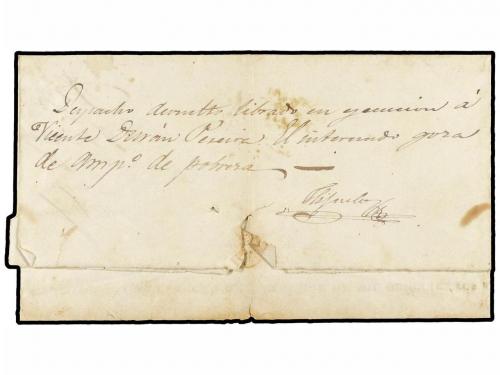 Despacho devuelto librado en ejecución á
Vicente Durán Pereira. El interesado goza
de Ampº. de pobreza —